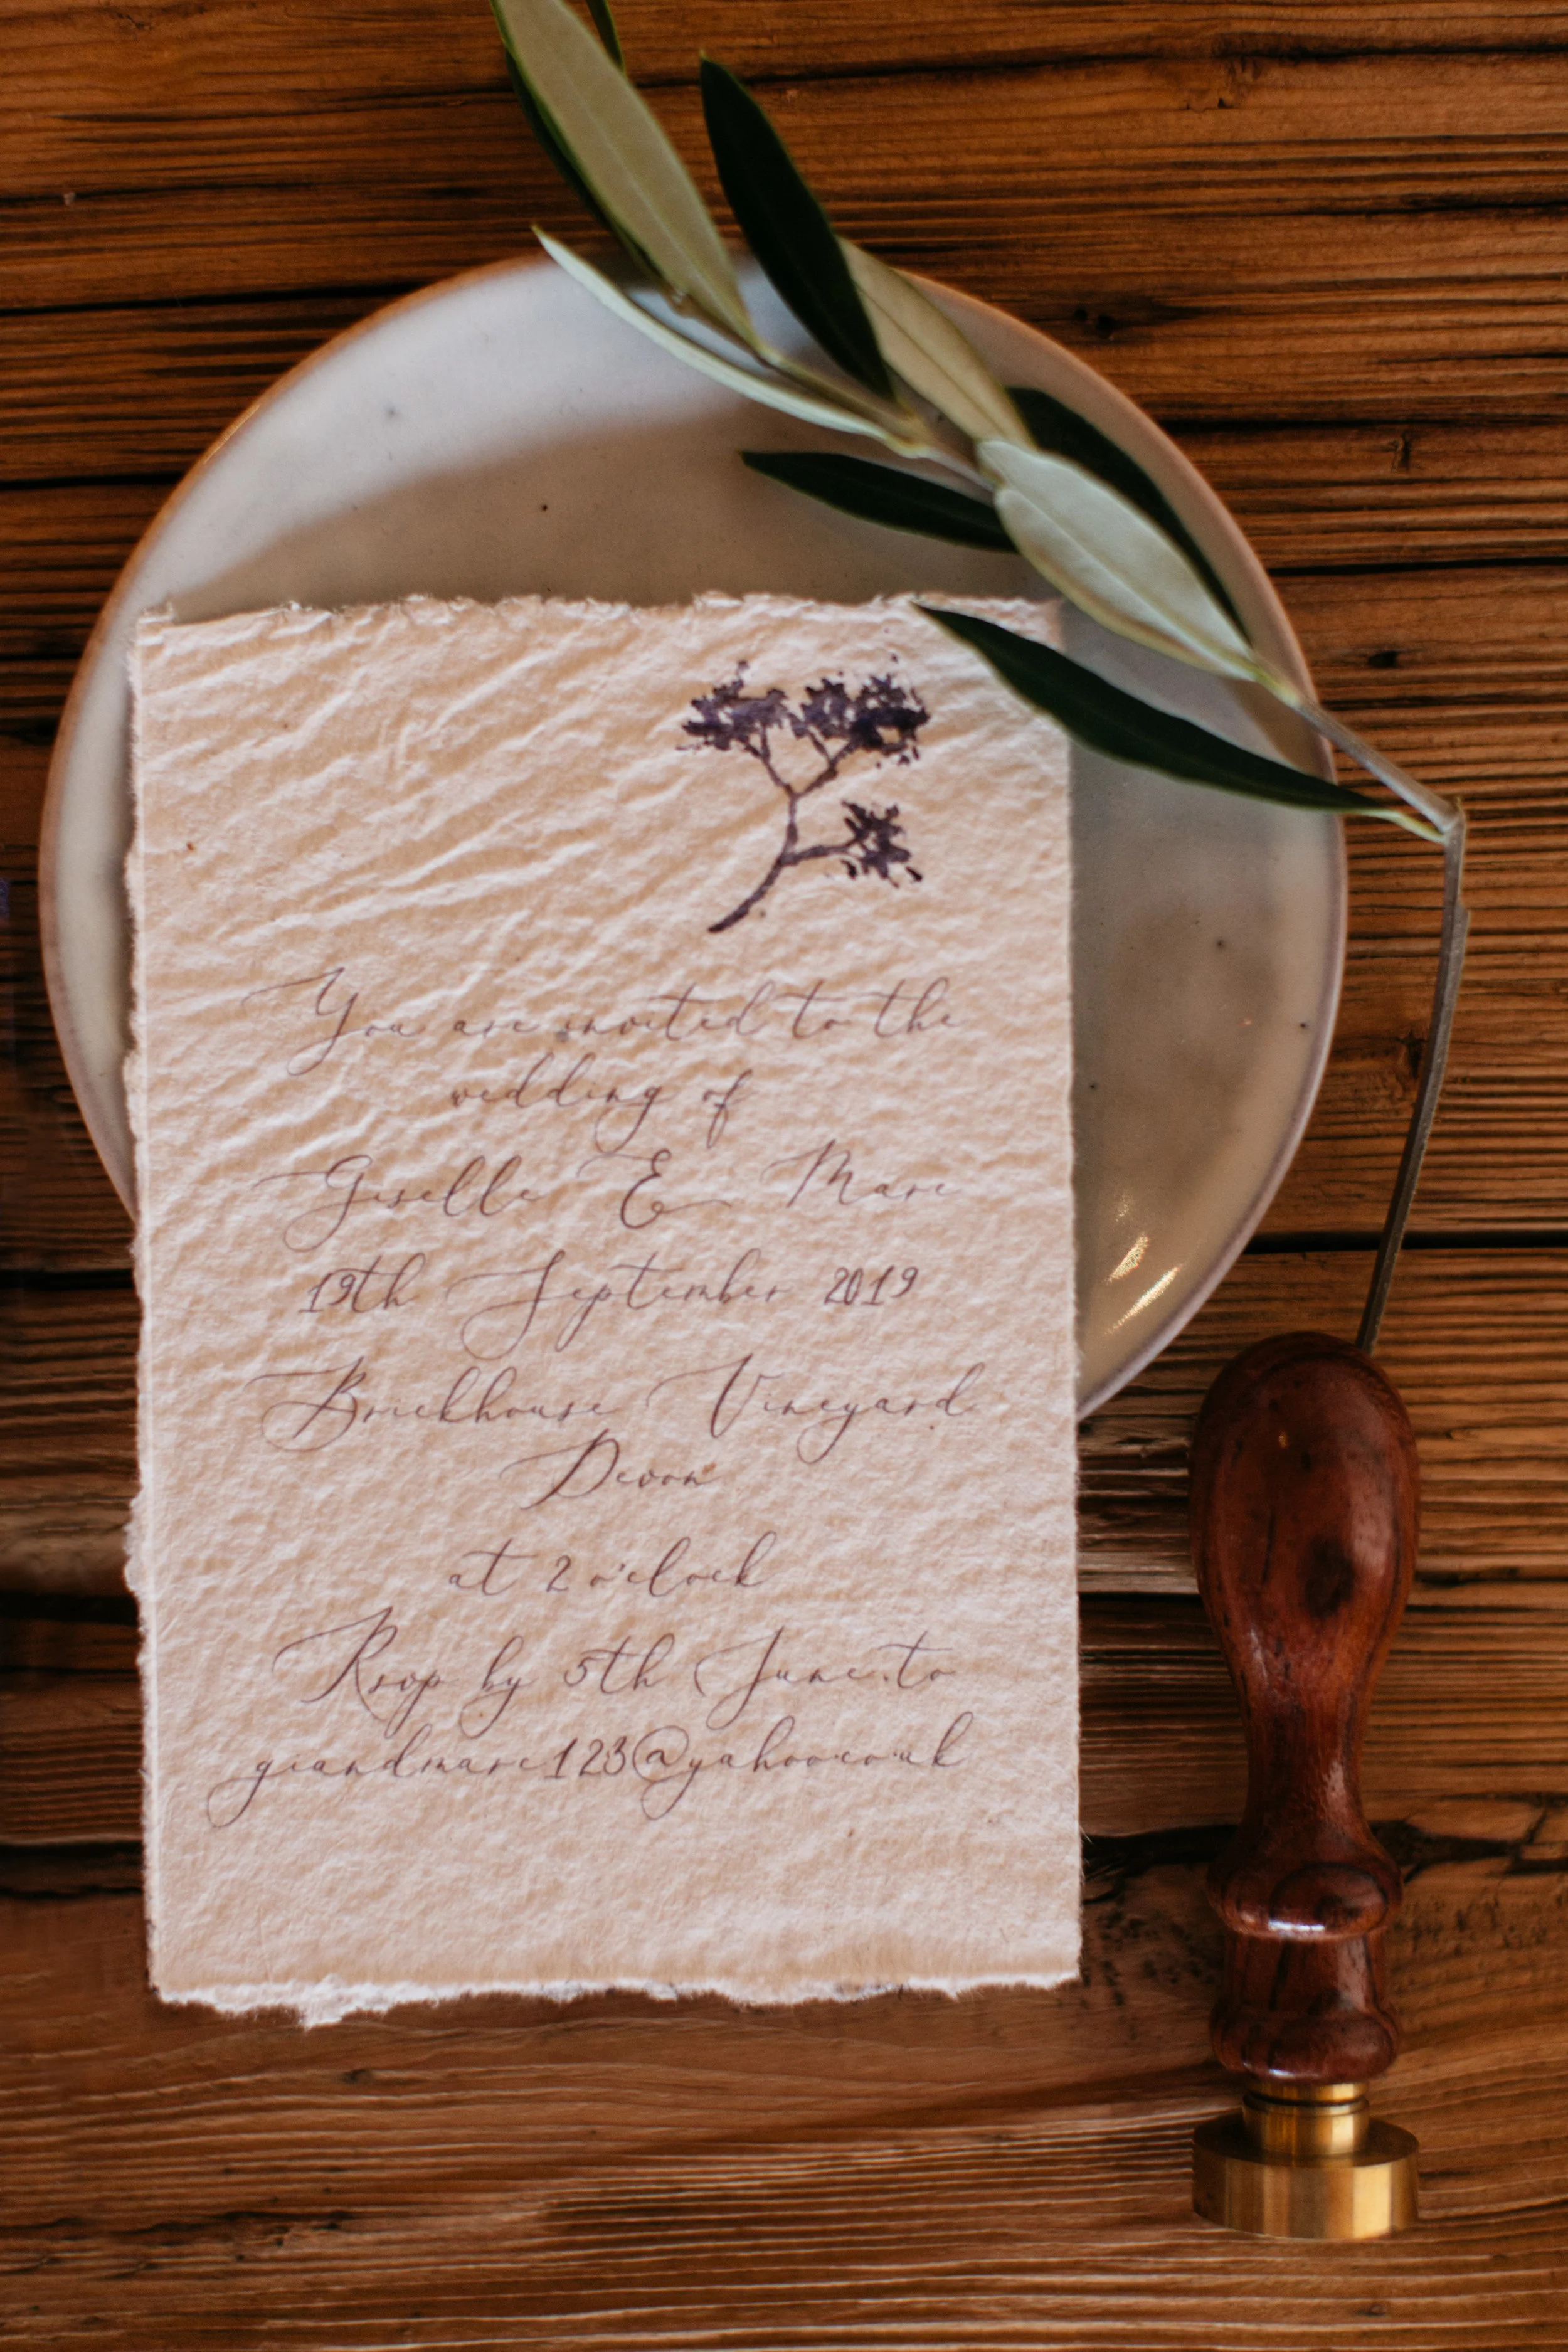 You are invited to the
wedding of
Giselle & Marc
19th September 2019
Brickhouse Vineyard
Devon
at 2 o'clock
Rsvp by 5th June to
giandmarc123@yahoo.co.uk